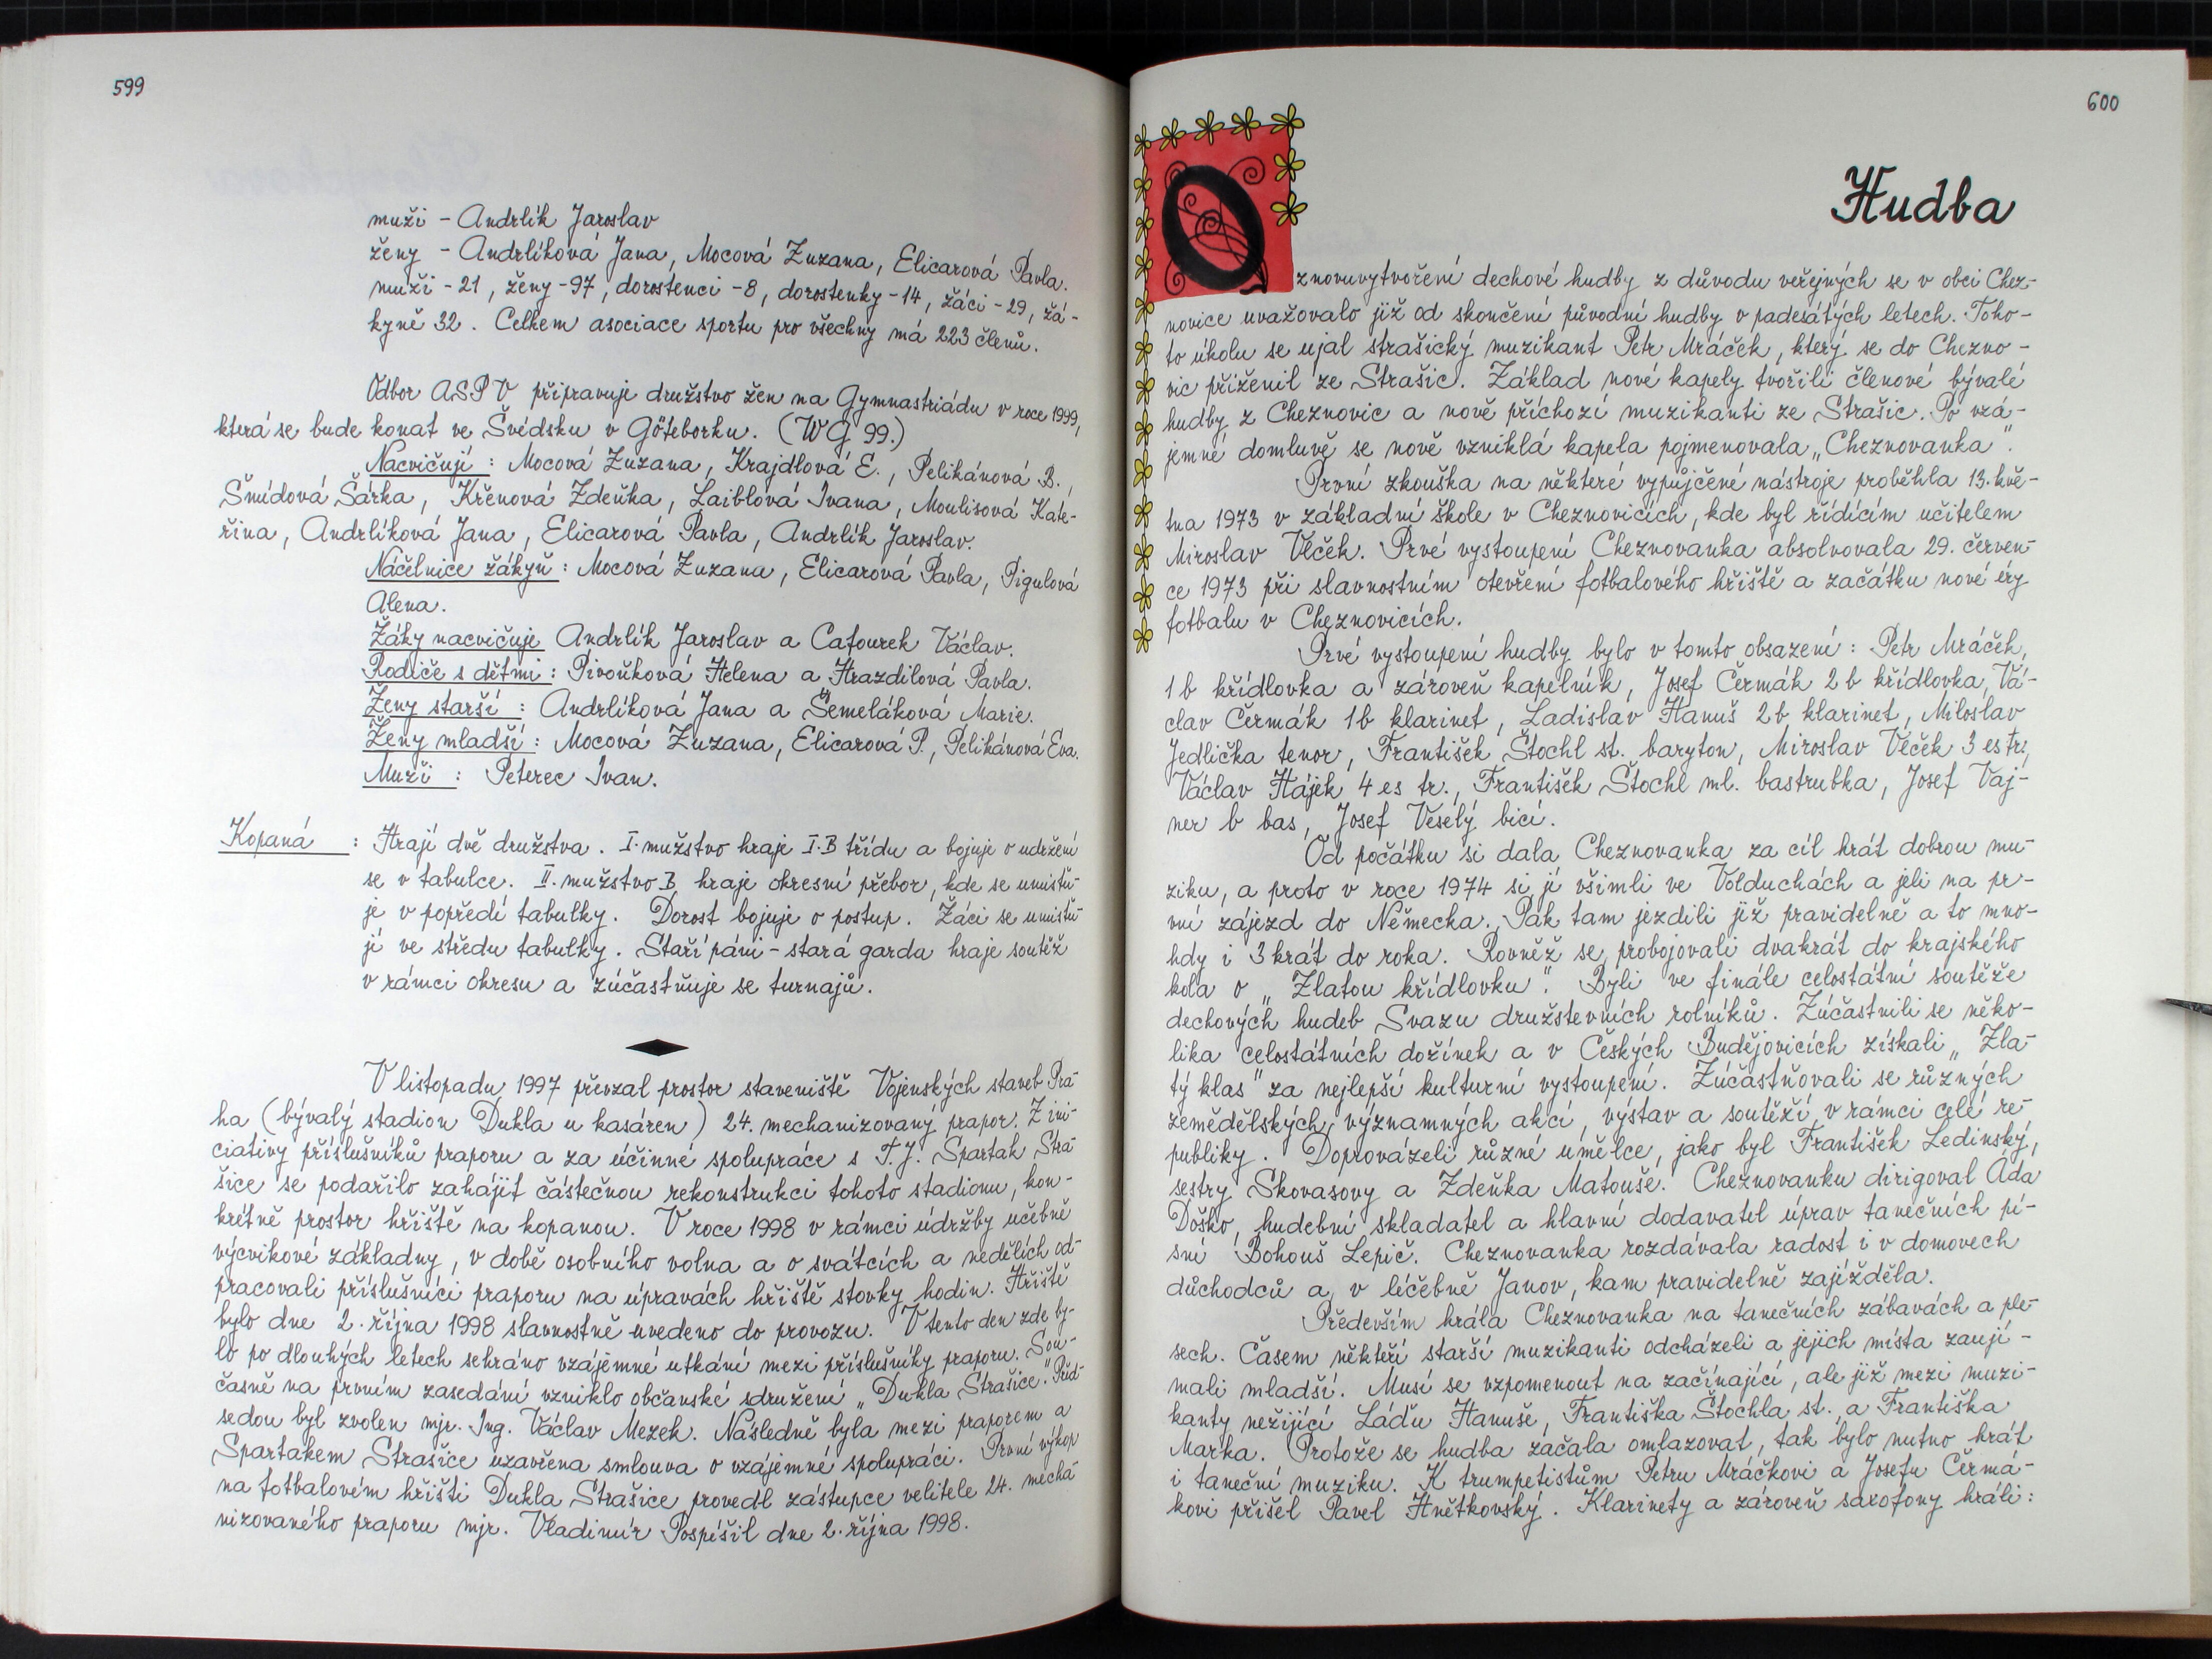 599
muži - Andrlík Jaroslav
ženy - Andrlíková Jana, Mocová Zuzana, Elicarová Pavla.
muži - 21, ženy - 97, dorostenci - 8, dorostenky - 14, žáci - 29, žá-
kyně 32. Celkem asociace sportu pro všechny má 223 členů.
Odbor ASPV připravuje družstvo žen na Gymnastriádu v roce 1999,
která se bude konat ve Švédsku v Göteborku. (WG 99.)
Nacvičují : Mocová Zuzana, Krajdlová E., Pelikánová B.,
Šmídová Šárka, Křenová Zdeňka, Laiblová Ivana, Moulisová Kate-
řina, Andrlíková Jana, Elicarová Pavla, Andrlík Jaroslav.
Náčelnice žákyň : Mocová Zuzana, Elicarová Pavla, Pigulová
Alena.
Žáky nacvičuje Andrlík Jaroslav a Cafourek Václav.
Rodiče s dětmi : Pivoňková Helena a Hrazdilová Pavla.
Ženy starší : Andrlíková Jana a Šemeláková Marie.
Ženy mladší : Mocová Zuzana, Elicarová P., Pelikánová Eva.
Muži : Peterec Ivan.
Kopaná : Hrají dvě družstva. I. mužstvo hraje I.B třídu a bojuje o udržení
se v tabulce. II. mužstvo B hraje okresní přebor, kde se umisťu-
je v popředí tabulky. Dorost bojuje o postup. Žáci se umisťu-
jí ve středu tabulky. Staří páni - stará garda hraje soutěž
v rámci okresu a zúčastňuje se turnajů.
V listopadu 1997 převzal prostor staveniště Vojenských staveb Pra-
ha (bývalý stadion Dukla u kasáren) 24. mechanizovaný prapor. Z ini-
ciativy příslušníků praporu a za účinné spolupráce s T.J. Spartak Stra-
šice se podařilo zahájit částečnou rekonstrukci tohoto stadionu, kon-
krétně prostor hřiště na kopanou. V roce 1998 v rámci údržby učebně
výcvikové základny, v době osobního volna a o svátcích a nedělích od-
pracovali příslušníci praporu na úpravách hřiště stovky hodin. Hřiště
bylo dne 2. října 1998 slavnostně uvedeno do provozu. V tento den zde by-
lo po dlouhých letech sehráno vzájemné utkání mezi příslušníky praporu. Sou-
časně na prvním zasedání vzniklo občanské sdružení „Dukla Strašice". Před-
sedou byl zvolen mjr. Ing. Václav Mezek. Následně byla mezi praporem a
Spartakem Strašice uzavřena smlouva o vzájemné spolupráci. První výkop
na fotbalovém hřišti Dukla Strašice provedl zástupce velitele 24. mecha-
nizovaného praporu mjr. Vladimír Pospíšil dne 2. října 1998.
600
Hudba
O znovuvytvoření dechové hudby z důvodu veřejných se v obci Chez-
novice uvažovalo již od skončení původní hudby v padesátých letech. Toho-
to úkolu se ujal strašický muzikant Petr Mráček, který se do Chezno-
vic přiženil ze Strašic. Základ nové kapely tvořili členové bývalé
hudby z Cheznovic a nově příchozí muzikanti ze Strašic. Po vzá-
jemné domluvě se nově vzniklá kapela pojmenovala „Cheznovanka".
První zkouška na některé vypůjčené nástroje proběhla 13. kvě-
tna 1973 v základní škole v Cheznovicích, kde byl řídícím učitelem
Miroslav Vlček. Prvé vystoupení Cheznovanka absolvovala 29. červen-
ce 1973 při slavnostním otevření fotbalového hřiště a začátku nové éry
fotbalu v Cheznovicích.
Prvé vystoupení hudby bylo v tomto obsazení : Petr Mráček,
1 b křídlovka a zároveň kapelník, Josef Čermák 2 b křídlovka, Vá-
clav Čermák 1b klarinet, Ladislav Hanuš 2b klarinet, Miloslav
Jedlička tenor, František Štochl st. baryton, Miroslav Vlček 3 es tr.,
Václav Hájek 4 es tr., František Štochl ml. bastrubka, Josef Vaj-
ner b bas, Josef Veselý bicí.
Od počátku si dala Cheznovanka za cíl hrát dobrou mu-
ziku, a proto v roce 1974 si jí všimli ve Volduchách a jeli na pr-
vní zájezd do Německa. Pak tam jezdili již pravidelně a to mno-
hdy i 3 krát do roka. Rovněž se probojovali dvakrát do krajského
kola o „Zlatou křídlovku". Byli ve finále celostátní soutěže
dechových hudeb Svazu družstevních rolníků. Zúčastnili se něko-
lika celostátních dožínek a v Českých Budějovicích získali „Zla-
tý klas" za nejlepší kulturní vystoupení. Zúčastňovali se různých
zemědělských, významných akcí, výstav a soutěží v rámci celé re-
publiky. Doprovázeli různé umělce, jako byl František Ledinský,
sestry Skovasovy a Zdeňka Matouše. Cheznovanku dirigoval Áda
Doško, hudební skladatel a hlavní dodavatel úprav tanečních pí-
sní Bohouš Lepič. Cheznovanka rozdávala radost i v domovech
důchodců a v léčebně Janov, kam pravidelně zajížděla.
Především hrála Cheznovanka na tanečních zábavách a ple-
sech. Časem někteří starší muzikanti odcházeli a jejich místa zaují-
mali mladší. Musí se vzpomenout na začínající, ale již mezi muzi-
kanty nežijící Láďu Hanuše, Františka Štochla st. a Františka
Marka. Protože se hudba začala omlazovat, tak bylo nutno hrát
i taneční muziku. K trumpetistům Petru Mráčkovi a Josefu Čermá-
kovi přišel Pavel Hnětkovský. Klarinety a zároveň saxofony hráli :